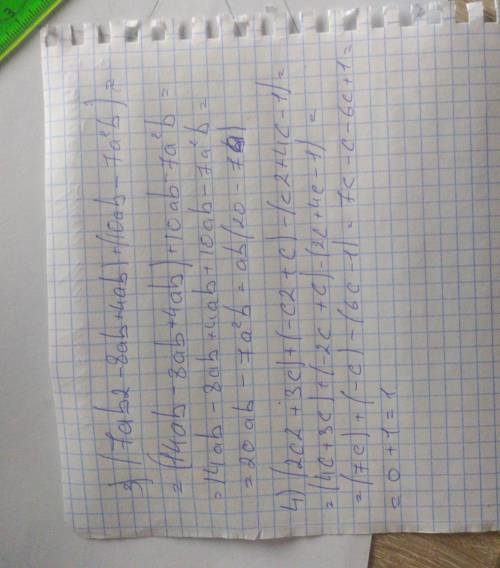 3) (7ab2 - 8ab + 4ab) + (10ab - 7a²b) =
= (14ab - 8ab + 4ab) + 10ab - 7a²b =
= 14ab - 8ab + 4ab + 10ab - 7a²b =
= 20ab - 7a²b = ab(20 - 7a)
4) (2c2 + 3c) + (-c2 + c) - (c2 + 4c - 1) =
= (4c + 3c) + (-2c + c) - (2c + 4c - 1) =
= (7c) + (-c) - (6c - 1) = 7c - c - 6c + 1 =
= 0 + 1 = 1